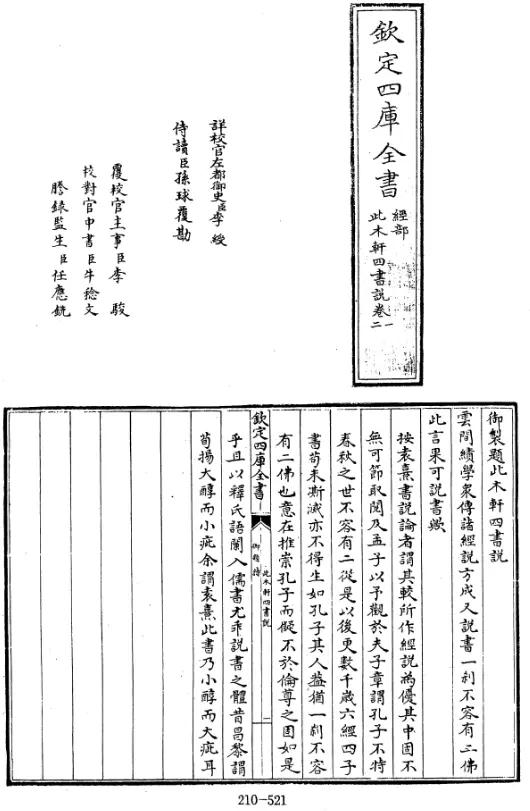 欽定四庫全書
經部
此木軒四書說卷一
二
詳校官左都御史臣李綬
侍讀臣孫球覆勘
覆校官主事臣李駿
校對官中書臣牛稔文
謄錄監生臣任應銑
御製題此木軒四書說
雲間績學衆傳諸經說方成又說書一刹不容有二佛
此言果可說書歟
按袁熹書說論者謂其較所作經說為優其中固不
無可節取閱及孟子以予觀於夫子章謂孔子不特
春秋之世不容有二從是以後更數千歲六經四子
書苟未澌滅亦不得生如孔子其人葢猶一刹不容
有二佛也意在推崇孔子而儗不於倫尊之固如是
欽定四庫全書
御題詩
此木軒四書說
一
乎且以釋氏語闌入儒書尤乖說書之體昔昌黎謂
荀揚大醇而小疵余謂袁熹此書乃小醇而大疵耳
210-521